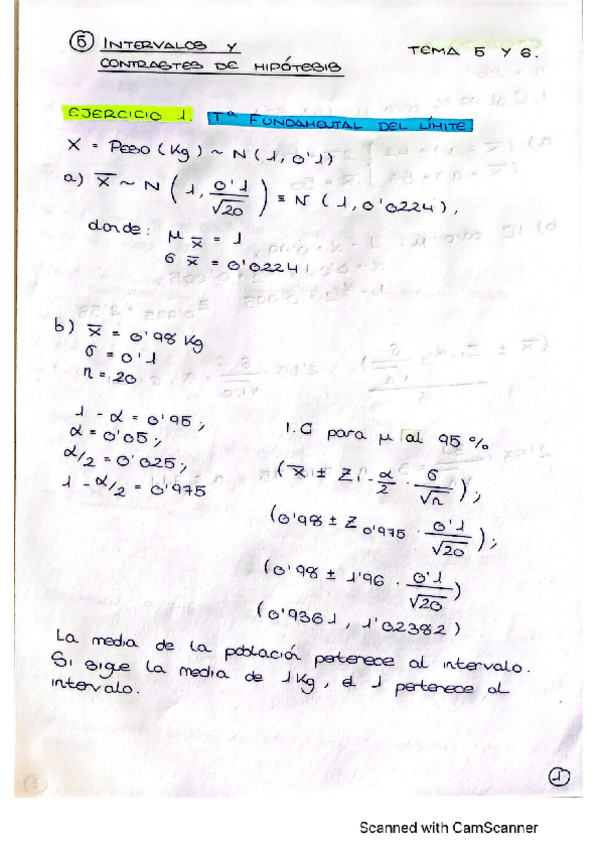 ⑤ INTERVALOS Y TEMA 5 Y 6.
CONTRASTES DE HIPÓTESIS
EJERCICIO 1. Tª FUNDAMENTAL DEL LÍMITE.
X = PESO (Kg) ~ N (1, 0'1)
a) X̄ ~ N (1, 0'1/√20) ≡ N (1, 0'0224),
donde: μ x̄ = 1
σ x̄ = 0'0224.
b) x̄ = 0'98 Kg
σ = 0'1
n = 20
1 - α = 0'95;
α = 0'05;
α/2 = 0'025;
1 - α/2 = 0'975
I.C para μ al 95 %
(x̄ ± Z 1 - α/2 · σ/√n);
(0'98 ± Z 0'975 · 0'1/√20);
(0'98 ± 1'96 · 0'1/√20)
(0'9361, 1'02382)
La media de la población petenece al intervalo.
Si sigue la media de 1Kg, el 1 pertenece al
intervalo.
1
Scanned with CamScanner